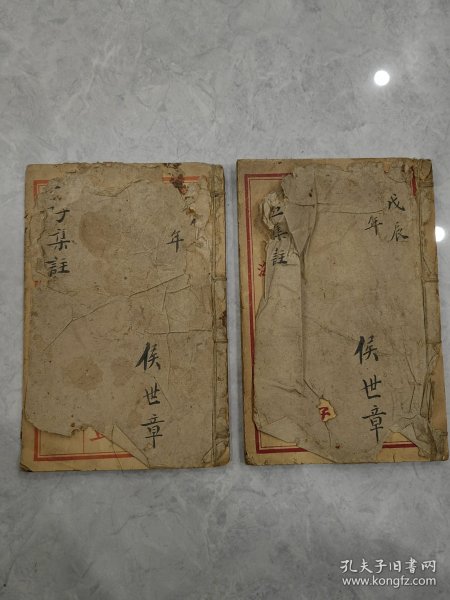 集註
年
侯世章
集註
戊辰
年
侯世章
孔夫子旧书网
www.kongfz.com